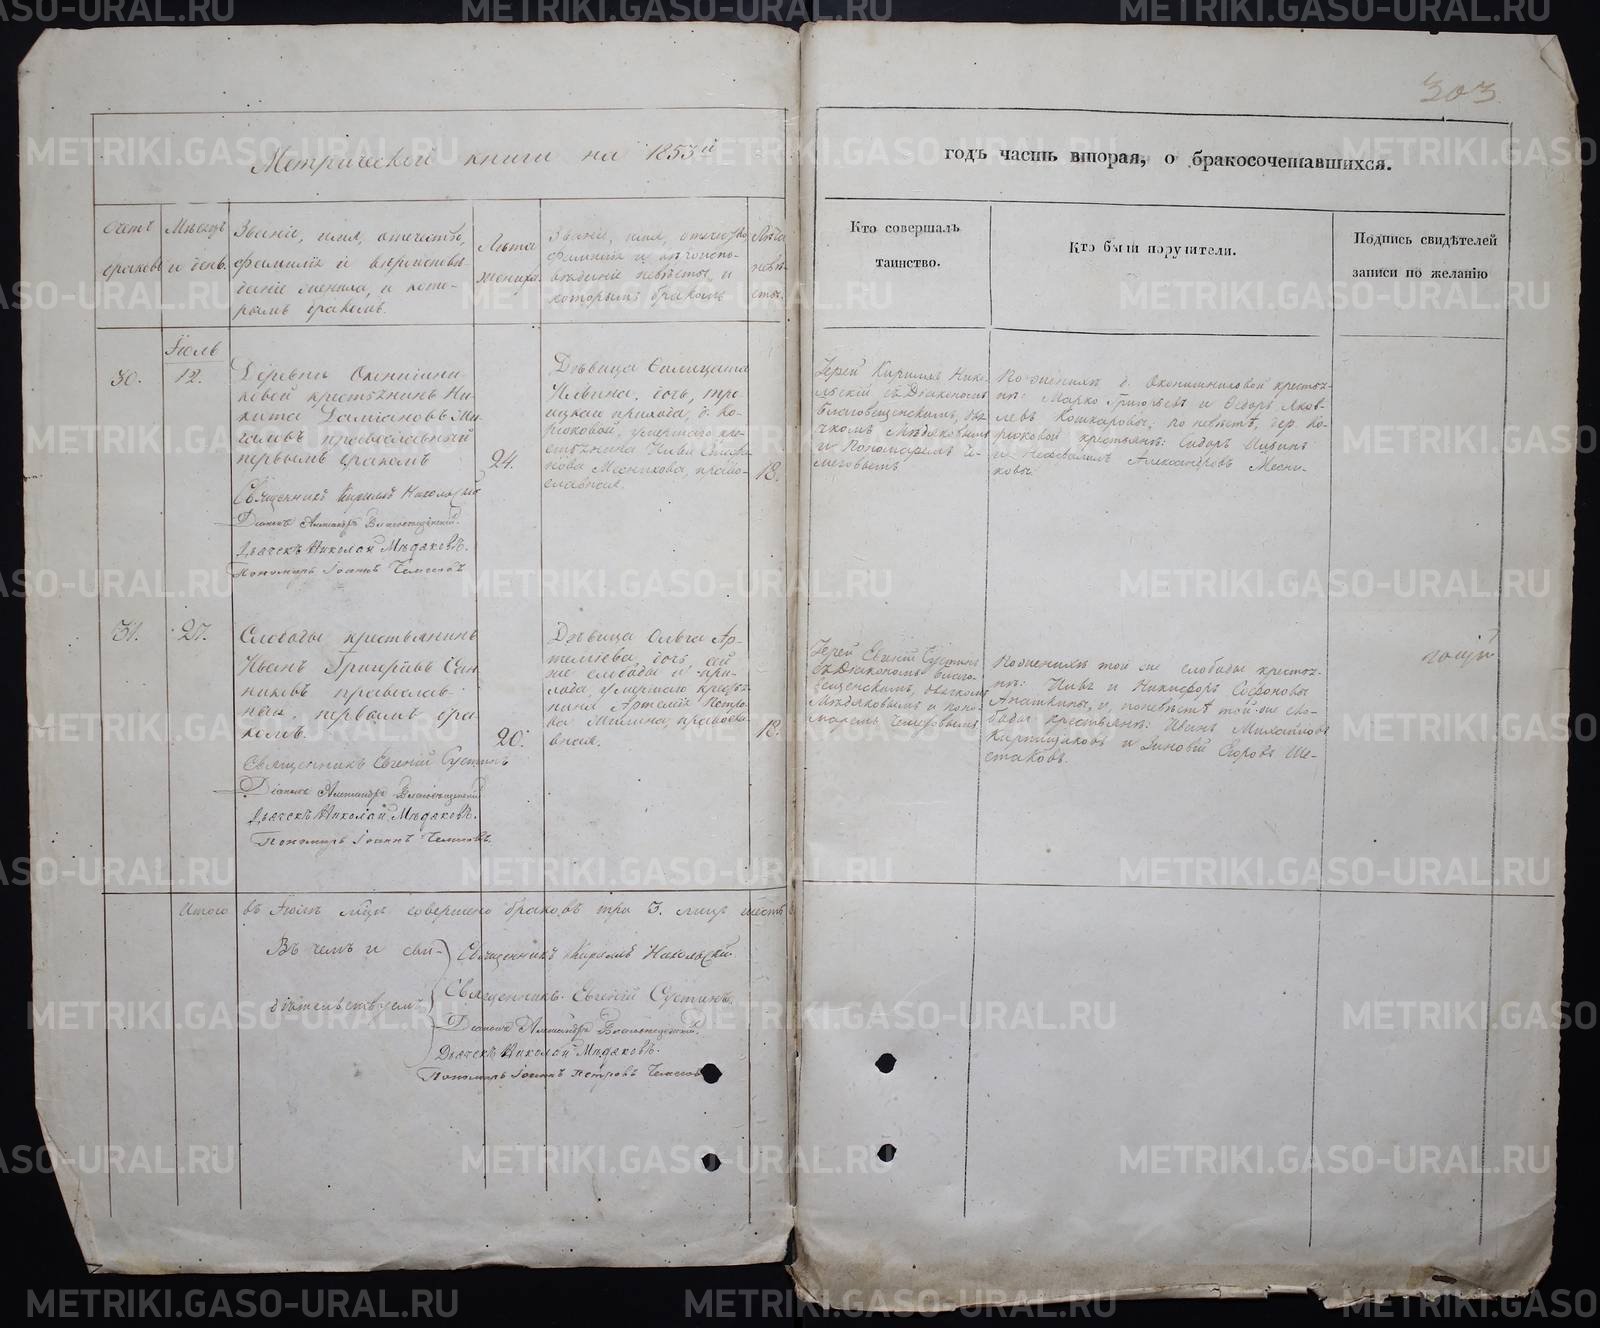 303
Метрической книги на 1853й
годъ часть вторая, о бракосочетавшихся.
Счетъ браковъ
Мѣсяцъ и день.
Званіе, имя, отечество,
фамилія и вѣроисповѣ-
даніе жениха, и кото-
рымъ бракомъ.
Лѣта жениха
Званіе, имя, отечество,
фамилія и вѣроиспо-
вѣданіе невѣсты, и
которымъ бракомъ
Лѣта невѣ-
сты.
Кто совершалъ
таинство.
Кто были поручители.
Подпись свидѣтелей
записи по желанію
Іюль
30.
12.
Деревни
ковой крестьянинъ Ни-
кита Даміановъ
православный
первымъ бракомъ
Священникъ Кириллъ Никольскій
Діаконъ Александръ Благовещенскій.
Дьячекъ Николай Мѣдяковъ.
Пономарь Іоаннъ
24.
Дѣвица
Ильина, дочь, тро-
ицкаго прихода, д. Ко-
рюковой, умершаго кре-
стьянина Ильи
Месникова, право-
славная.
18.
Іерей Кириллъ Нико-
льскій съ Діакономъ
Благовещенскимъ, дья-
чкомъ Мѣдяковымъ
и Пономаремъ
По женихѣ д. крестья-
нѣ: Марко Григорьевъ и Ѳедоръ Яков-
левъ Кошкаровы, по невѣстѣ, дер. Ко-
рюковой крестьянѣ: Сидоръ Ильинъ
и Александровъ Месни-
ковы.
31.
27.
Слободы крестьянинъ
Иванъ Григорьевъ
православ-
ный, первымъ бра-
комъ.
Священникъ Евгеній Сустинъ
Діаконъ Александръ Благовещенскій
Дьячекъ Николай Мѣдяковъ.
Пономарь Іоаннъ
20.
Дѣвица Ольга Ар-
теміева, дочь, сей
же слободы и при-
хода, умершаго кресть-
янина Артемія Петро-
ва православ-
ная.
18.
Іерей Евгеній Сустинъ
съ Діакономъ Благо-
вещенскимъ, дьячкомъ
Мѣдяковымъ и поно-
маремъ
По женихѣ той же слободы крестья-
нѣ: Илья и Никифоръ Софоновы
и, по невѣстѣ той же сло-
боды крестьянѣ: Иванъ Михайловъ
и Зиновій Егоровъ Ше-
стаковъ.
Итого въ Іюлѣ мѣсяцѣ совершено браковъ три 3. лицъ шесть 6
Въ чемъ и сви-
дѣтельствуемъ
Священникъ Кириллъ Никольскій
Священникъ Евгеній Сустинъ.
Діаконъ Александръ Благовещенскій.
Дьячекъ Николай Мѣдяковъ.
Пономарь Іоаннъ Петровъ
METRIKI.GASO-URAL.RU